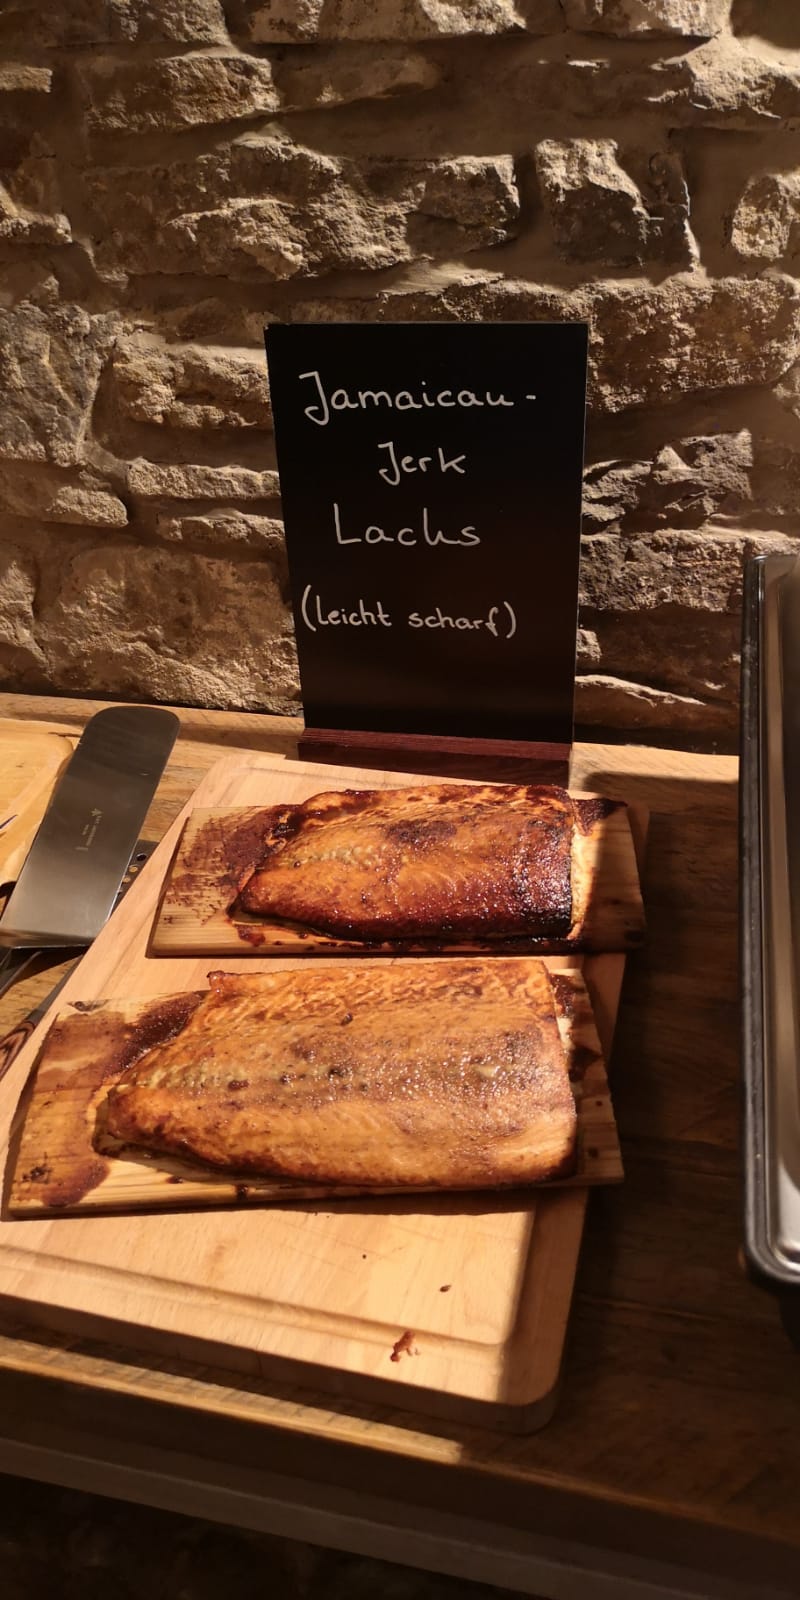 Jamaican-
Jerk
Lachs
(leicht scharf)